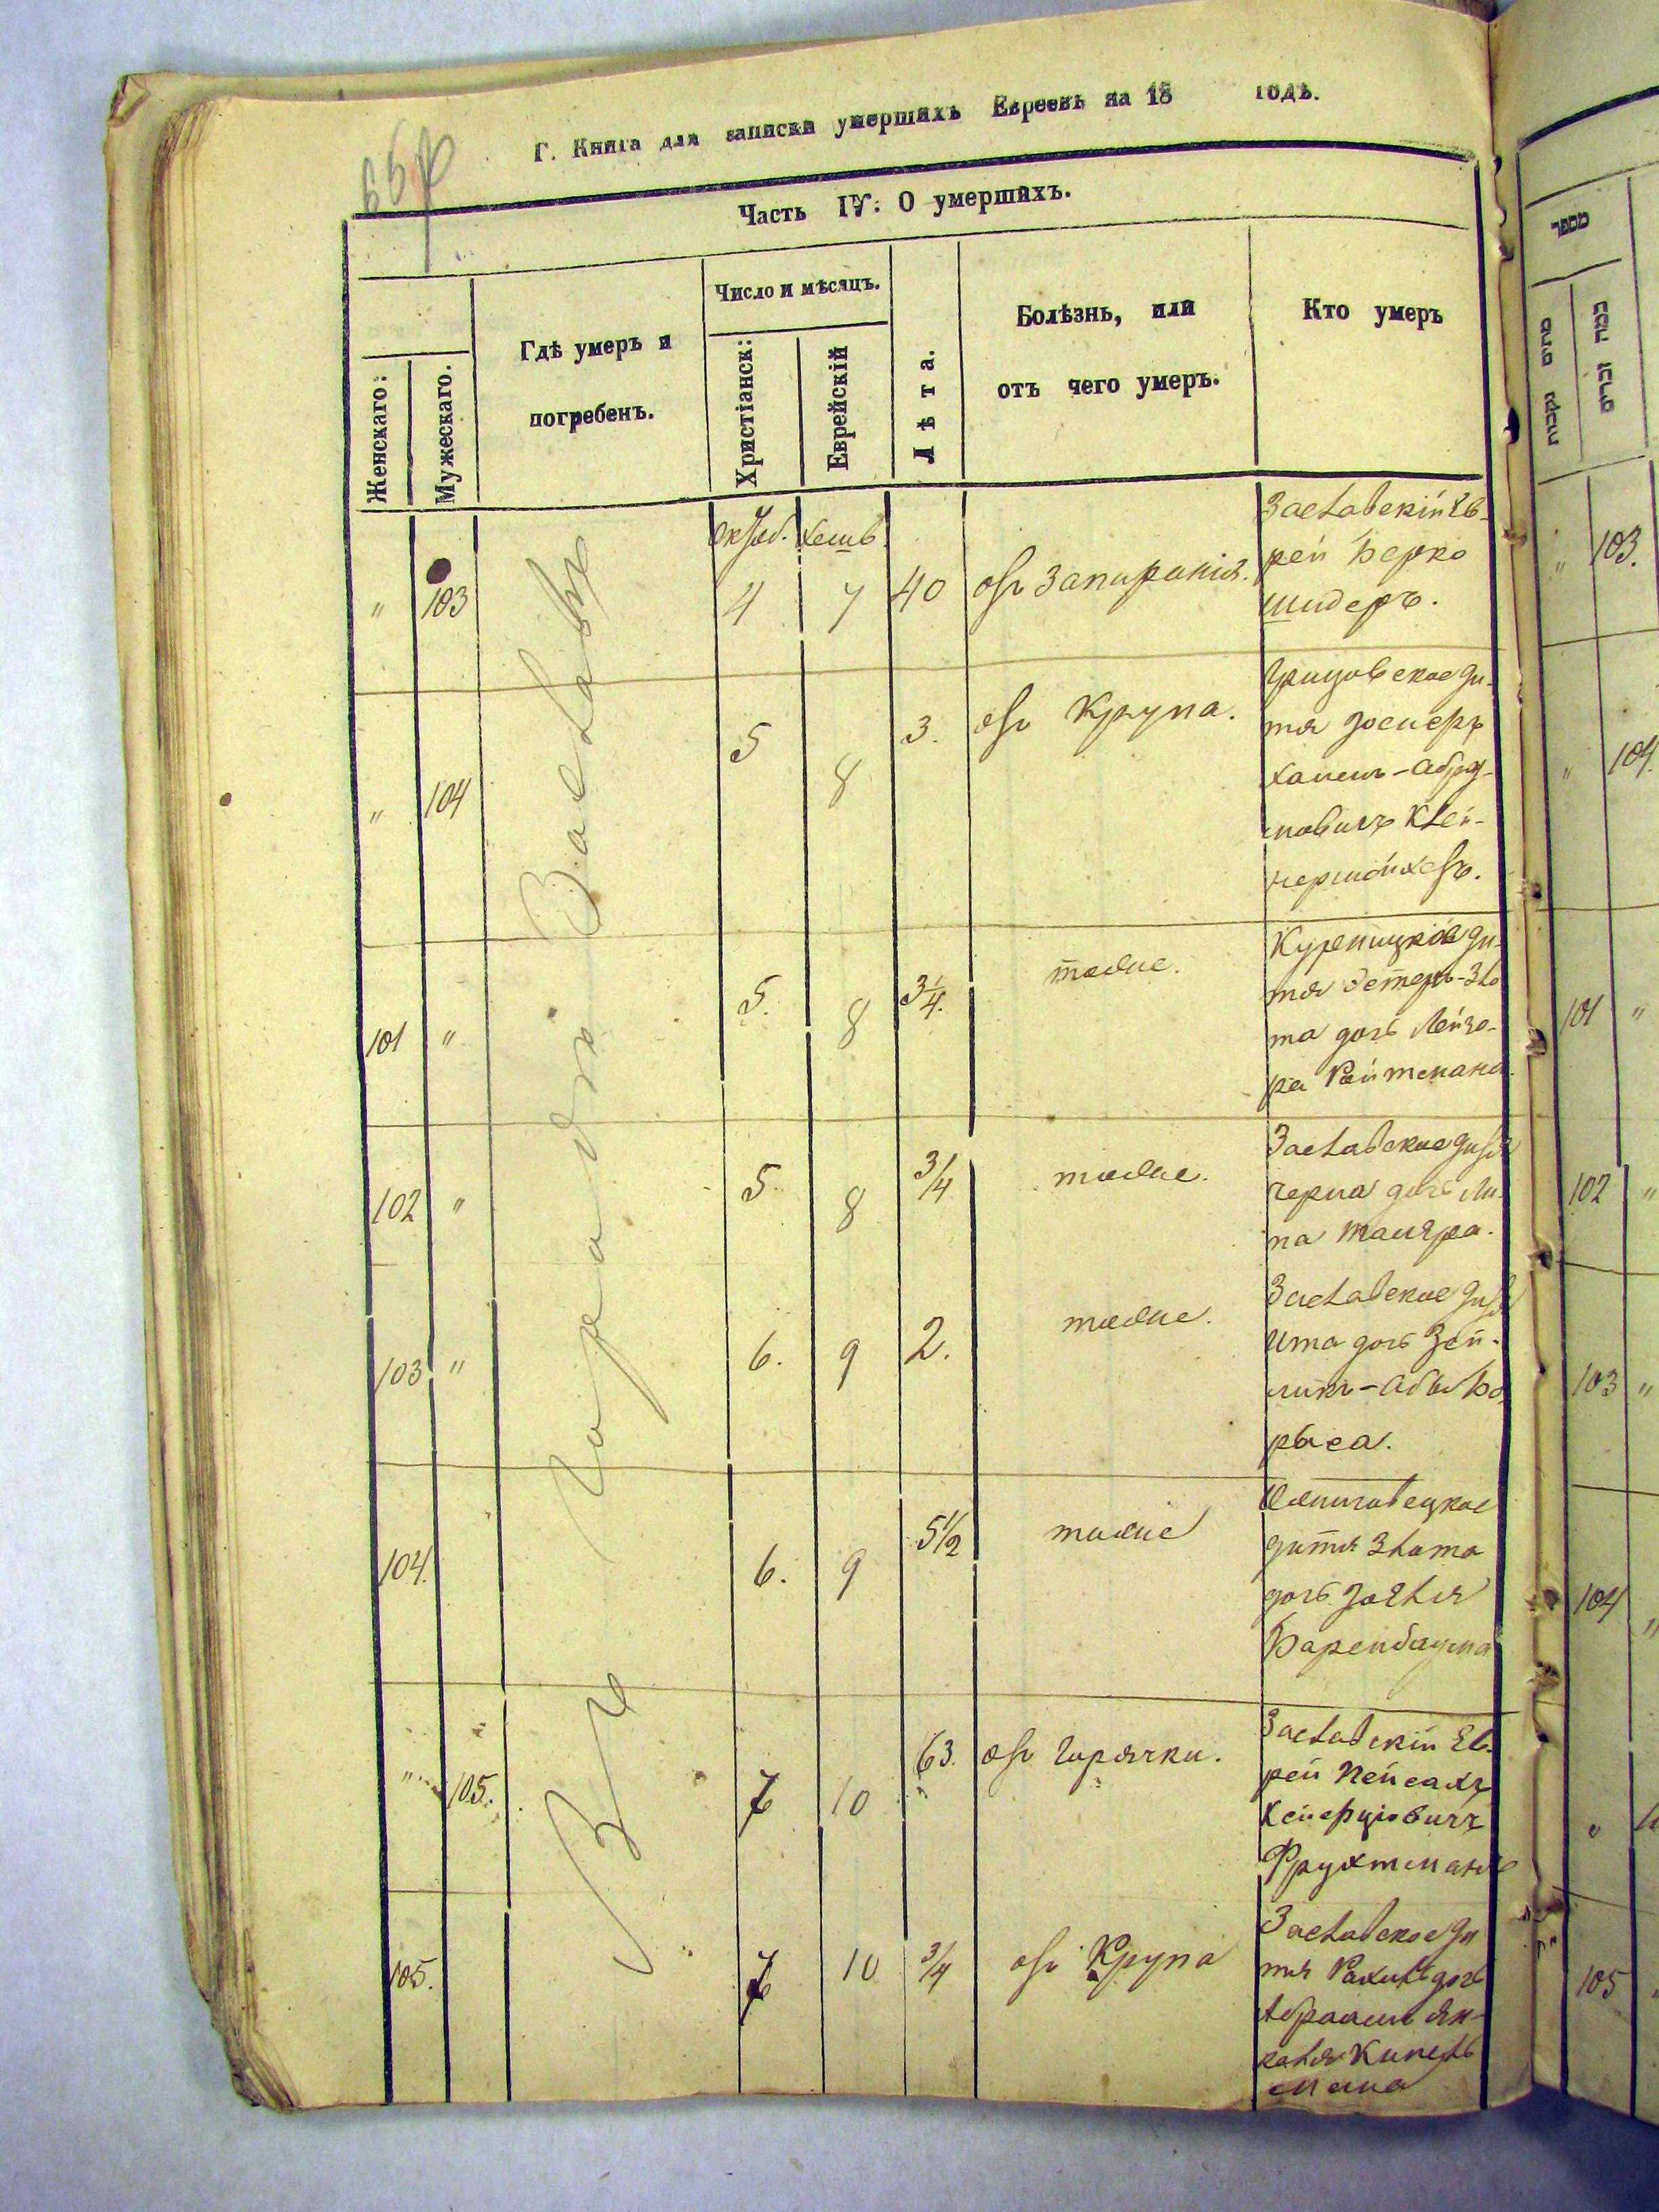 Г. Книга для записки умершихъ Евреевъ на 18 годъ.
Часть IV: О умершихъ.
Женскаго:
Мужескаго.
Гдѣ умеръ и
погребенъ.
Число и мѣсяцъ.
Христіанск:
Еврейскій
Лѣта.
Болѣзнь, или
отъ чего умеръ.
Кто умеръ
Въ городѣ Заславлѣ
Октяб. Хешв.
" 103 4 7 40 отъ Запиранія.
Заславскій Ев-
рей Берко
Шидеръ.
" 104 5 8 3. отъ Крупа.
Грицовское ди-
тя Іосиеръ
-Абра-
мовичъ Клей-
нершойхетъ.
101 " 5. 8 3/4. тоже.
ди-
тя Эстеръ-Зла
та дочь Лейзо-
ра Ройтмана.
102 " 5 8 3/4 тоже.
Заславское дитя
Черна дочь Ли-
па
103 " 6. 9 2. тоже.
Заславское дитя
Ита дочь Зей-
-Абы Бо
рыса.
104. 6. 9 5 1/2 тоже
дитя Злата
дочь Іоэля
Баренбаума
" 105. 7 10 63. отъ Горячки.
Заславскій Ев-
рей Пейсахъ
Фрухтманъ
105. 7 10 3/4 отъ Крупа
Заславское ди
тя Рахиль дочь
Абраамъ Ян-
келя Кипель
мана
מספר
מתים נקבות
כמה זכרים
" 103.
" 104.
101 "
102 "
103 "
104 "
105